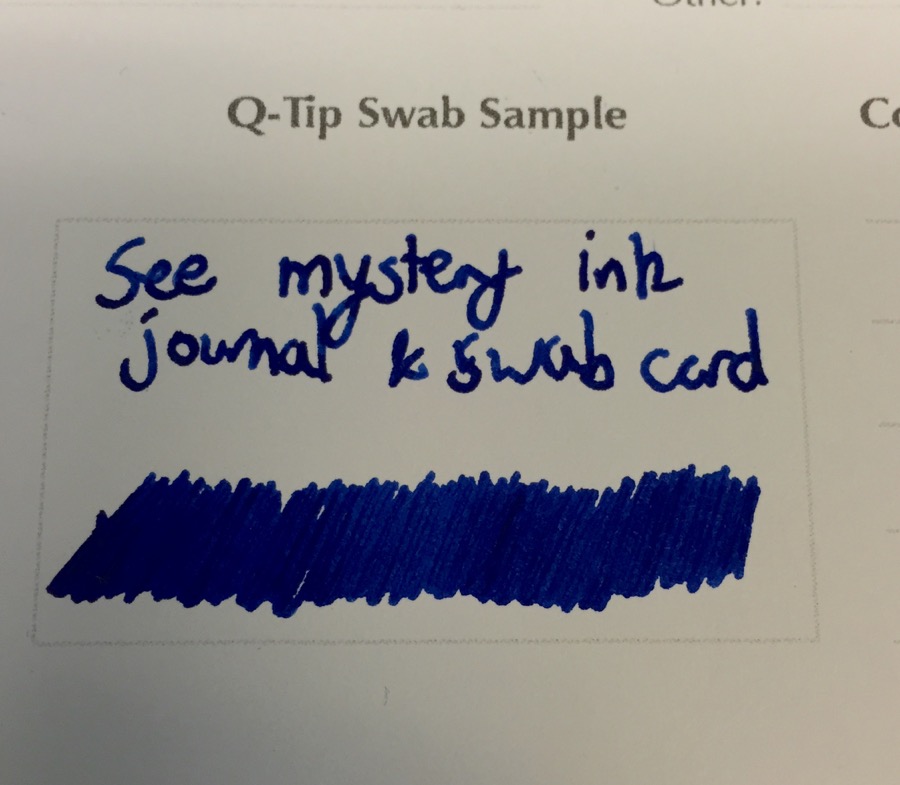 Other:
Q-Tip Swab Sample
See mystery ink
journal & swab card